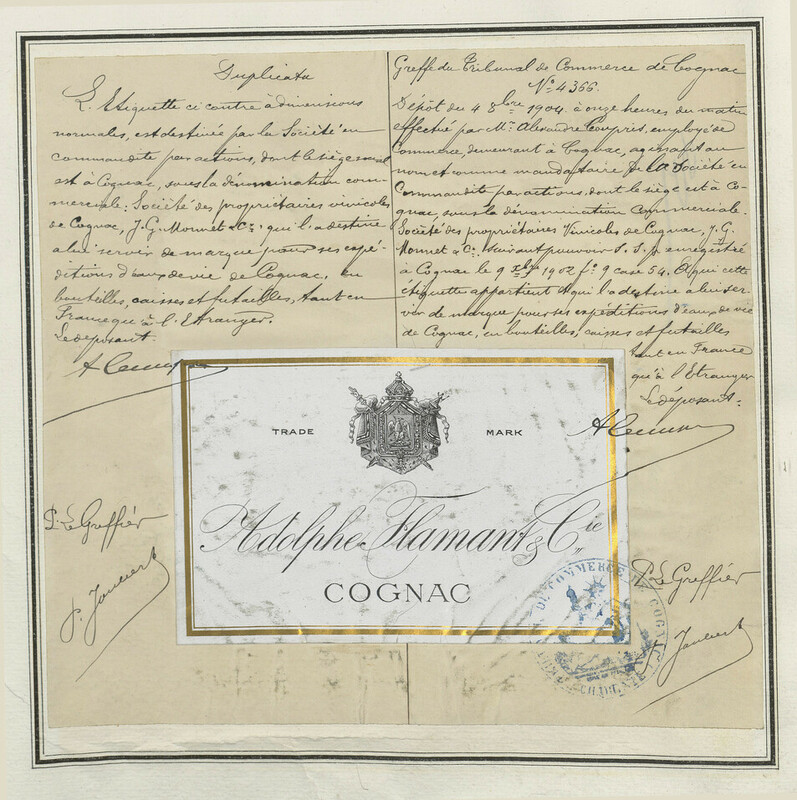 Duplicata
L'Etiquette ci contre à dimensions
normales, est destinée par la Société en
commandite par actions, dont le siège social
est à Cognac, sous la dénomination com-
merciale: Société des propriétaires vinicoles
de Cognac, J. G. Monnet & Cie qui l'a destine
à lui servir de marque pour ses expé-
ditions d'eaux de vie de Cognac, en
bouteilles, caisses et futailles, tant en
France qu'à l'Etranger.
Le déposant.
P. Le Greffier
Greffe du Tribunal de Commerce de Cognac
N° 4366.
Dépôt du 4 8bre 1904 à onze heures du matin
effectué par Mr. Alexandre employé de
Commerce, demeurant à Cognac, agissant au
nom et comme mandataire de la Société en
Commandite par actions dont le siège est à Co-
gnac sous la dénomination Commerciale.
Société des propriétaires Vinicoles de Cognac, J. G.
Monnet & Cie. suivant pouvoir S. S. P. enregistré
à Cognac le 9 xbre 1902 f° 9 case 54. A qui cette
étiquette appartient & qui la destine à lui ser-
vir de marque pour ses expéditions d'eaux de vie
de Cognac, en bouteilles, caisses et futailles
tant en France
qu'à l'Etranger
Le déposant.
P. Le Greffier
TRADE MARK
Adolphe Flamant & Cie
COGNAC
DE COMMERCE DE COGNAC